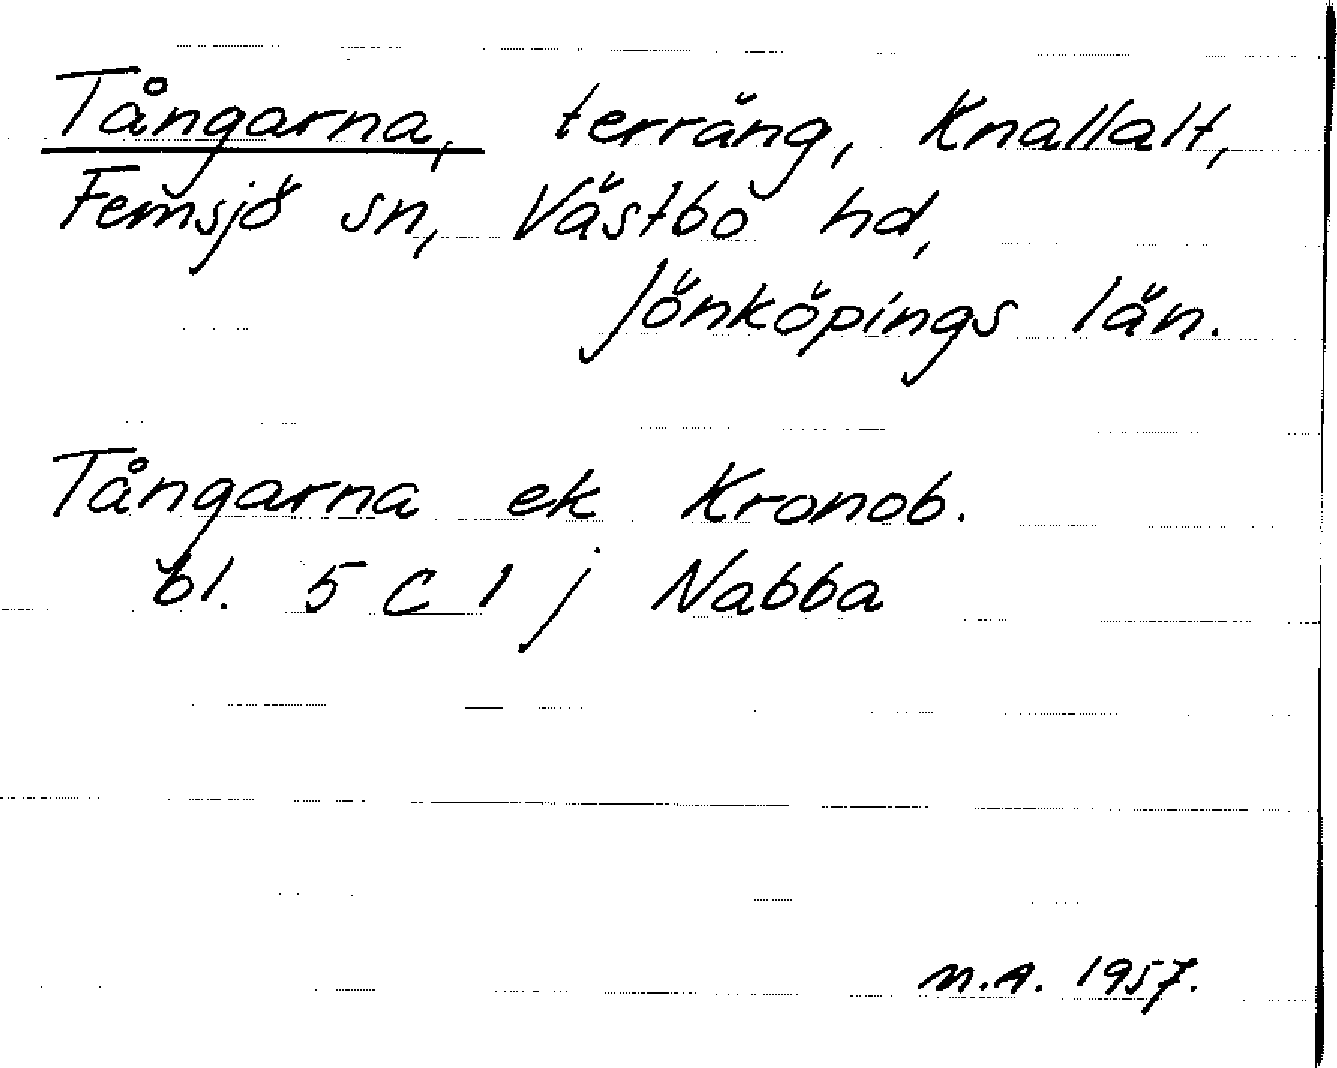 Tångarna, terräng, Knallalt,
Femsjö sn, Västbo hd,
Jönköpings län.
Tångarna ek Kronob.
bl. 5 C 1 j Nabba
M.A. 1957.